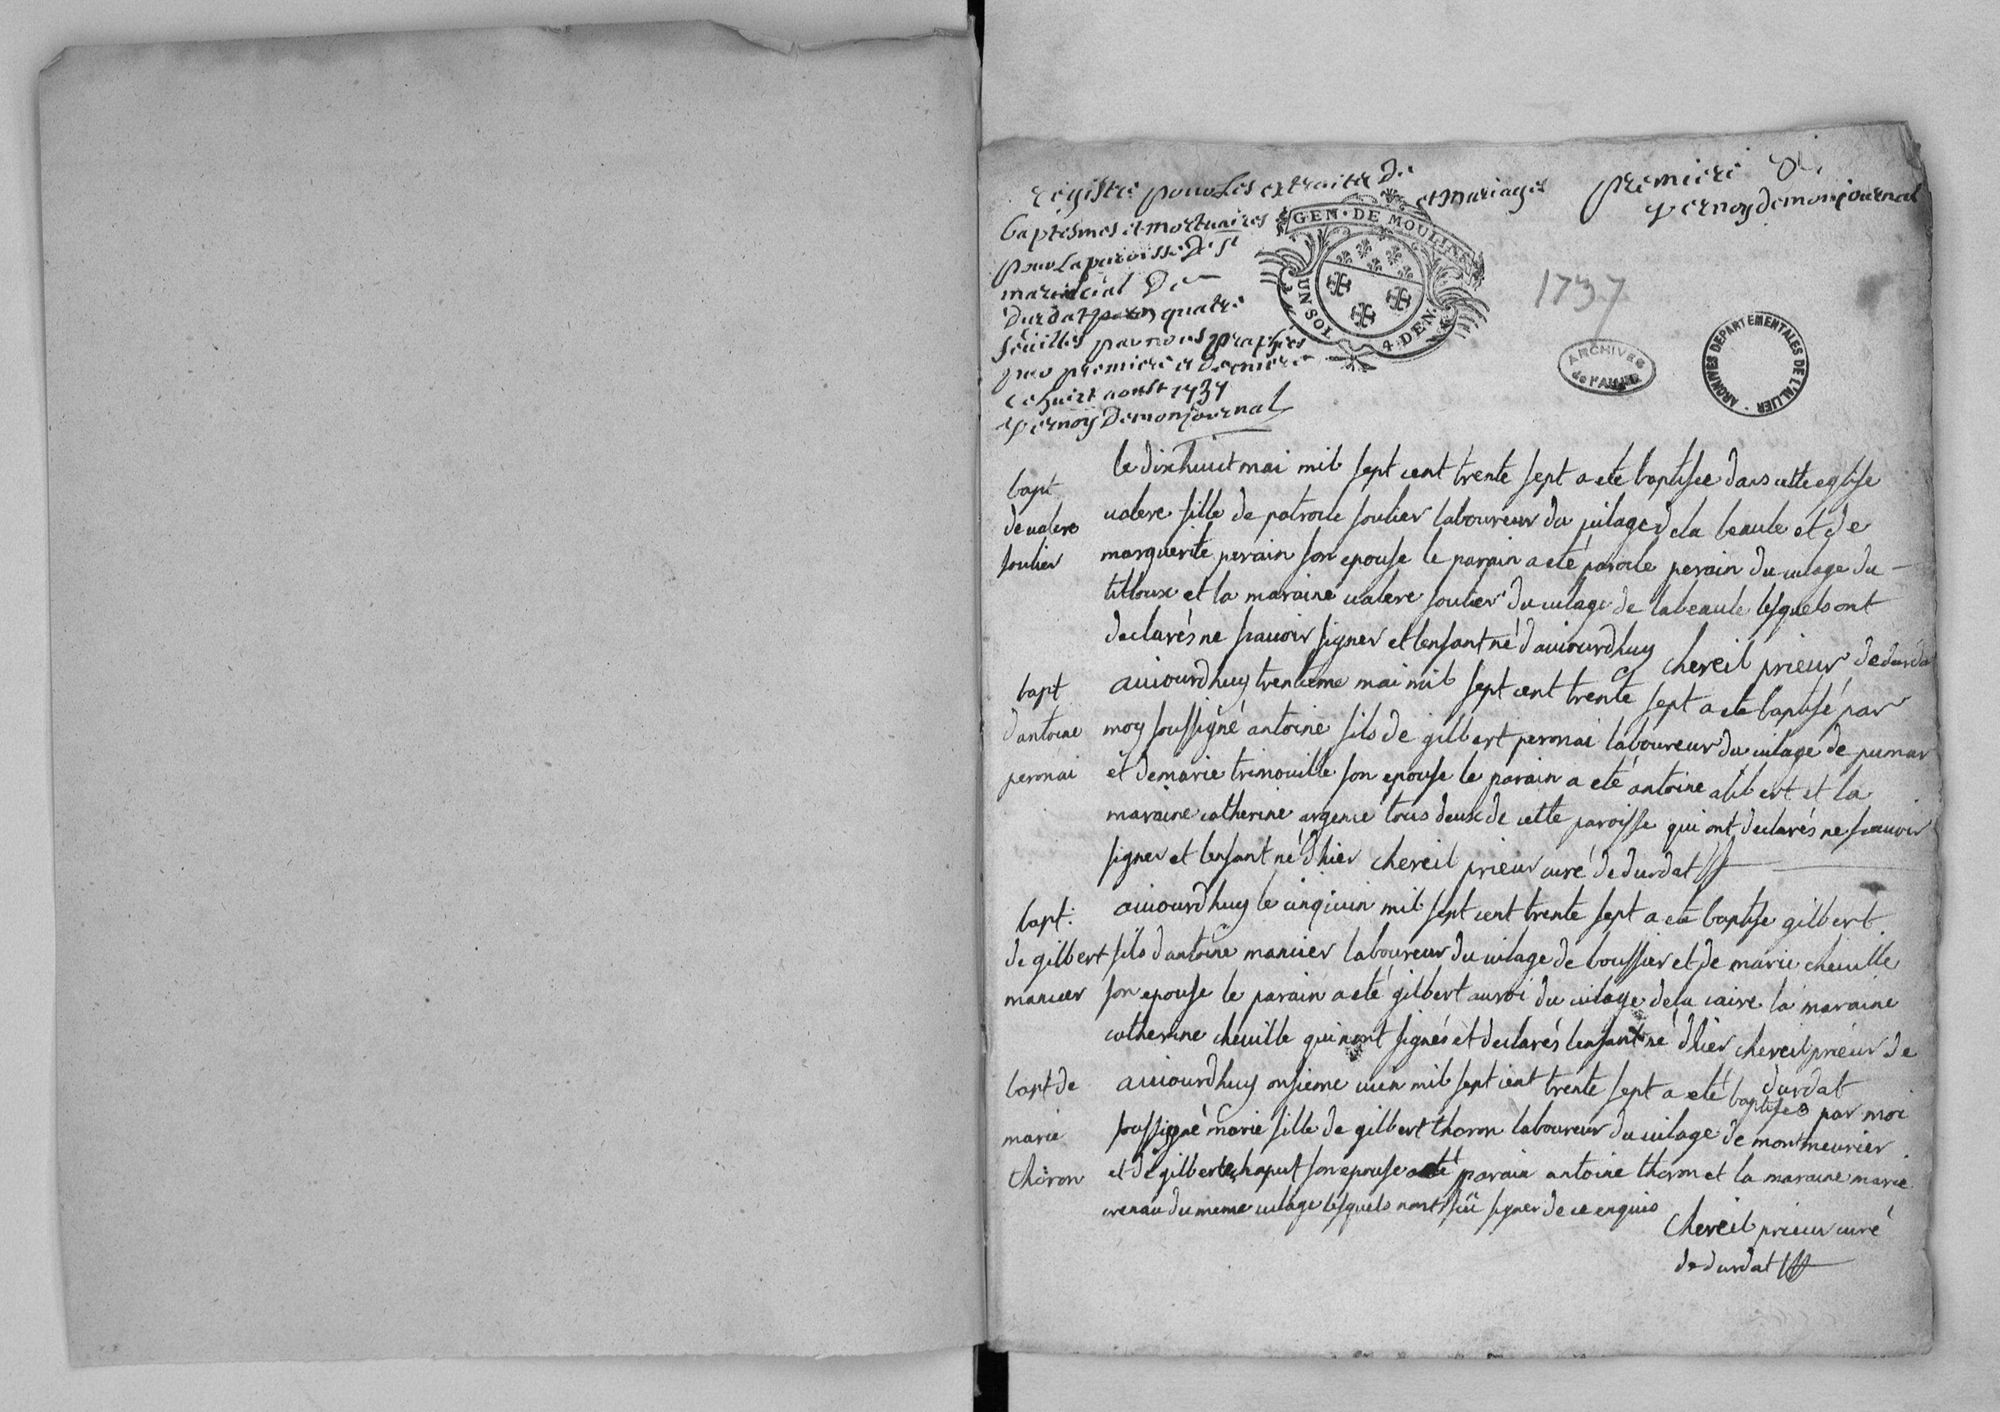 registre pour les extraits de
baptesmes et mortuaires et mariages
pour la paroisse de st
marcial de
durdat en quatre
feuilles par nous paraphés
par premiere et derniere
ce huict aoust 1737
vernoy demonjournal
premiere
vernoy demonjournal
GEN. DE MOULINS
UN SOL
4. DEN.
1737
ARCHIVES
de l'ALLIER
ARCHIVES DEPARTEMENTALES DE L'ALLIER
bapt
de valere
soulier
le dixhuict mai mil sept cent trente sept a ete baptisée dans cette eglise
valere fille de patrocle soulier laboureur du vilage de la beaule et de
marguerite perain son epouse le parain a eté parocle perain du vilage du
titloux et la maraine valere soulier du vilage de la beaule lesquels ont
declarés ne scauoir signer et lenfant né d'auiourdhuy chereil prieur de durdat
bapt
dantoine
pernai
auiourdhuy trentieme mai mil sept cent trente sept a ete baptisé par
moy soussigné antoine fils de gilbert pernai laboureur du vilage de pumar
et de marie trimouille son epouse le parain a eté antoine alibert et la
maraine catherine argence tous deux de cette paroisse qui ont declarés ne scauoir
signer et lenfant né d'hier chereil prieur curé de durdat
bapt:
de gilbert
mancier
auiourdhuy le cinq iuin mil sept cent trente sept a ete baptise gilbert
fils d'antoine mancier laboureur du vilage de boussier et de marie cheville
son epouse le parain a eté gilbert auroi du vilage de la caire la maraine
catherine cheville qui n'ont signés et declarés lenfant né d'hier chereil prieur de
durdat
bapt de
marie
thoron
auiourdhuy onsieme iuin mil sept cent trente sept a eté baptisee par moi
soussigné marie fille de gilbert thoron laboureur du vilage de montmeurier
et de gilberte chaput son epouse a eté parain antoine thoron et la maraine marie
crenau du meme vilage lesquels n'ont sçu signer de ce enquis
chereil prieur curé
de durdat